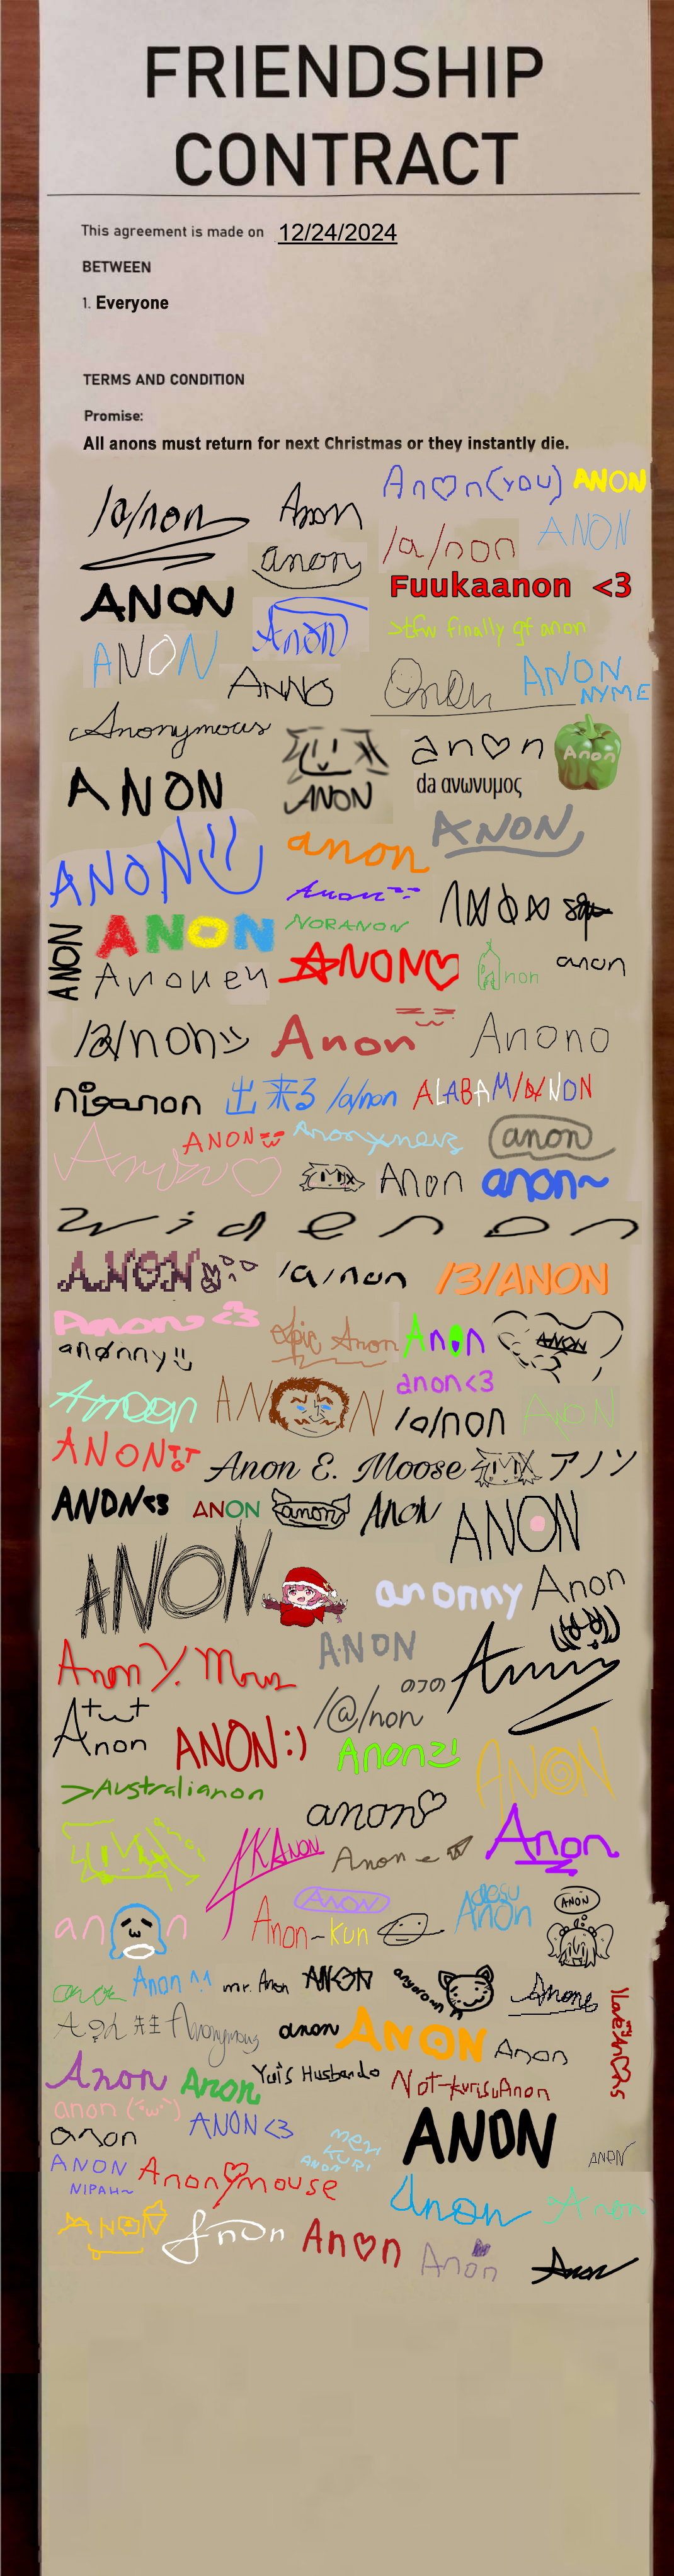 FRIENDSHIP
CONTRACT
This agreement is made on 12/24/2024
BETWEEN
1. Everyone
TERMS AND CONDITION
Promise:
All anons must return for next Christmas or they instantly die.
An♡n(YOU) ANON
/a/non Anon
/a/non ANON
anon
Fuukaanon <3
ANON
Anon
>tfw finally gf anon
ANON
ANON NYME
ANNO
Anonymous
an♡n Anon
ANON
da ανωνυμος
ANON
ANON
ANON
anon
Anon
NORANON
ANON
ANON
ANON♡
non
anon
Anonen
/a/non
Anon
Anono
niganon
出来る /a/non
ALABAM/A/NON
ANON
Anonymous
anon
Anon♡
Anon
anon~
Widenon
ANON
/a/non
/3/ANON
Anon <3
Epic Anon
Anon
ANON
anonny
anon<3
Anoon
ANON
/a/non
ANON
ANON
Anon E. Moose
アノン
ANON<3
ANON
anon
ANON
ANON
ANON
anonny
Anon
Anon Y. Mous
ANON
/@/non
Anon
ANON:)
Anon
ANON
>Australianon
anon♡
Anon
JKANON
Anon
anon
ANON
Anon-kun
desu
Anon
ANON
Anon ^^
mr. Anon
ANON
anyaronn
Anone
I Love An♡ns
先生
Anonymous
anon
ANON
Anon
Anon
Anon
Yui's Husbando
Not-kurisuAnon
anon (´ω`)
ANON <3
anon
ANON
MERI KURI
ANON
ANON
NIPAH~
Anonymouse
Anon
Anon
ANON
Anon
An♡n
Anon
Anon